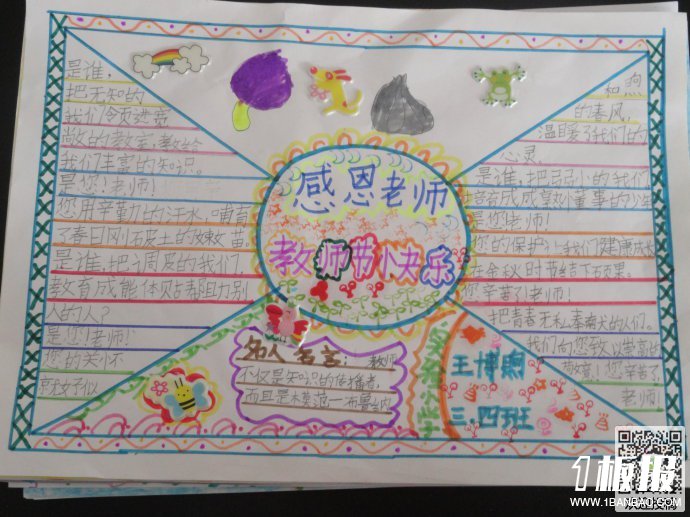 感恩老师
教师节快乐
是谁，
把无知的
我们领页进宽
敞的教室，教给
我们丰富的知识。
是您！老师！
您用辛勤的汗水，哺育
了春日刚石皮土的嫩苗
是谁，把调皮的我们，
教育成能体贴帮阻力别
人的人？
是您！老师！
您的关怀
就好似
和煦
的春风，
温暖了我们的
心灵。
是谁，把弱小的我们
培育成成熟懂事的少年
是您老师！
您的保护让我们健康成长
在金秋时节结下硕果。
您辛苦了老师！
把青春无私奉献的人们。
我们向您致以崇高的
敬意！您辛苦了
老师！
名人名言：教师
不仅是知识的传播者，
而且是模范一布鲁纳
王博煦
三.四班
板报
WWW.1BANBAO.COM